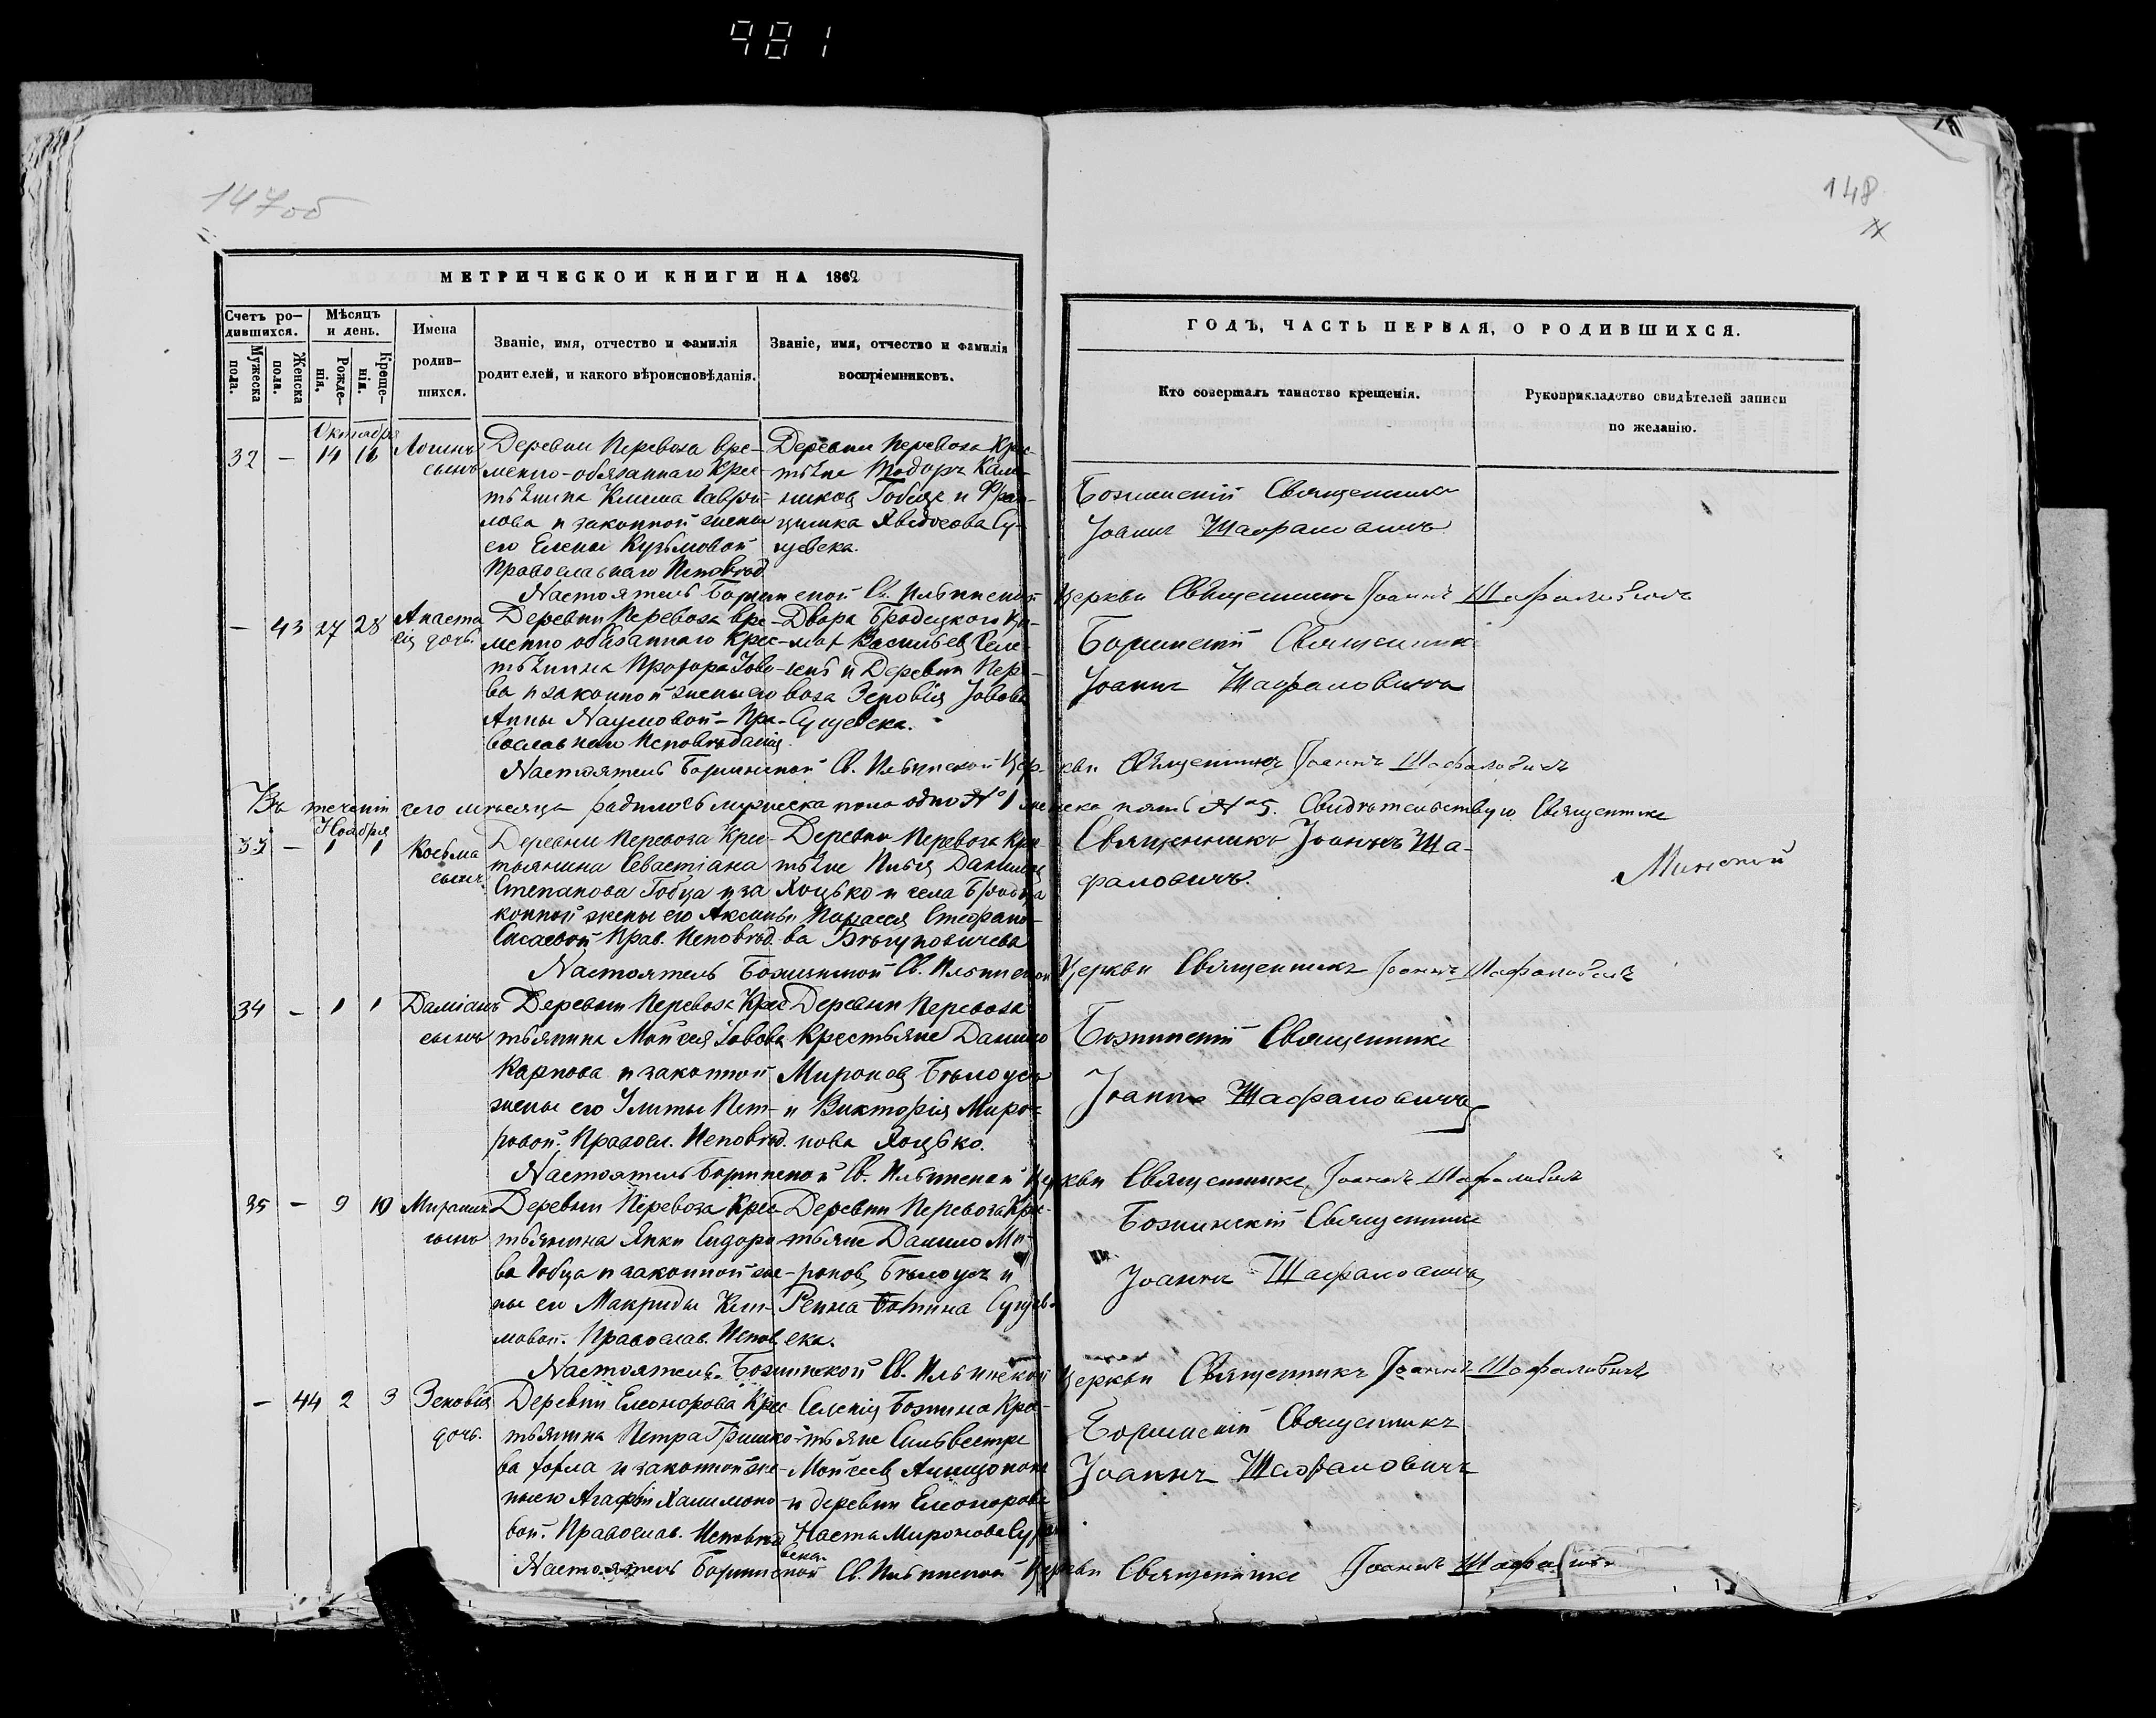 981
147об
148
МЕТРИЧЕСКОИ КНИГИ НА 1862
ГОДЪ, ЧАСТЬ ПЕРВАЯ, О РОДИВШИХСЯ.
Счетъ ро-
дившихся.
Мужеска
пола.
Женска
пола.
Мѣсяцъ
и день.
Рожде-
нія.
Креще-
нія.
Имена
родив-
шихся.
Званіе, имя, отчество и фамилія
родителей, и какого вѣроисповѣданія.
Званіе, имя, отчество и фамилія
воспріемниковъ.
Кто совершалъ таинство крещенія.
Рукоприкладство свидѣтелей записи
по желанію.
Октября
32 — 14 14
Логинъ
сынъ
Деревни Перевоза вре-
менно-обязаннаго Крес-
тьянина Клима
и законной жены
его Елены Кузьмовой
Православнаго Исповѣд
Деревни Перевоза Крес-
тьяне Тодоръ
Гобца и Фран-
цишка
Божинскій Священникъ
Іоаннъ Шафаловичъ
Настоятель Божинской Св. Ильинской Церкви Священникъ Іоаннъ Шафаловичъ
— 43 27 28
Анаста
сія дочь.
Деревни Перевоза вре-
менно обязаннаго Крес-
тьянина Прохора Іово-
ва и законной жены его
Анны Наумовой - Пра-
вославнаго Исповѣданія
Двора Бродецкого
Васильевъ
и Деревни Пере-
воза Зеновія Іовова
Сущевска.
Божинскій Священникъ
Іоаннъ Шафаловичъ
Настоятель Божинской Св. Ильинской Церкви Священникъ Іоаннъ Шафаловичъ
Въ теченіи сего мѣсяца родилось мужеска пола одно № 1 женска пять № 5. Свидѣтельствую Священникъ
Ноября
33 — 1 1
Косьма
сынъ
Деревни Перевоза Крес-
тьянина Севастіана
Степанова Гобца и за
конной жены его Аксиньи
Исаевой Прав. Исповѣд.
Деревни Перевоза Крес
тьяне Илья Данилов
Яцько и села Бродца
Парасся Стефано-
ва Бѣгуновичева
Священникъ Іоаннъ Ша-
фаловичъ.
Минской
Настоятель Божинской Св. Ильинской Церкви Священникъ Іоаннъ Шафаловичъ
34 — 1 1
Даміанъ
сынъ
Деревни Перевоза Крес
тьянина Мойсея Іовова
Карпова и законной
жены его Улиты Пет-
ровой. Правосл. Исповѣд.
Деревни Перевоза
Крестьяне Данило
Миронов Бѣлоусъ
и Викторія Миро-
нова Яцько.
Божинскій Священникъ
Іоаннъ Шафаловичъ
Настоятель Божинской Св. Ильинской Церкви Священникъ Іоаннъ Шафаловичъ
35 — 9 10
сынъ
Деревни Перевоза Крес-
тьянина Янки Сидоро-
ва Гобца и законной же-
ны его Макриды Кли-
мовой. Православ. Испов
Деревни Перевоза Крес-
тьяне Данило Ми-
ронов Бѣлоусъ и
Сущев-
ска.
Божинскій Священникъ
Іоаннъ Шафаловичъ
Настоятель Божинской Св. Ильинской Церкви Священникъ Іоаннъ Шафаловичъ
— 44 2 3
Зеновія
дочь.
Деревни Елеонорова Крес
тьянина Петра Гришко-
ва и законной же-
ны его Агафіи Халимоно-
вой. Православ. Исповѣд
Селенія Божина Кре-
тьяне Сильвестръ
Мойсеев
и деревни Елеонорова
Наста Миронова
Божинскій Священникъ
Іоаннъ Шафаловичъ
Настоятель Божинской Св. Ильинской Церкви Священникъ Іоаннъ